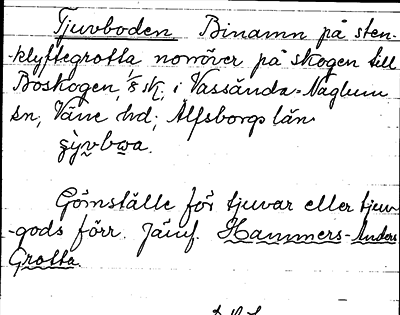 Tjuvboden Binamn på sten-
-klyftegrotta norröver på skogen till
Boskogen, 1/8 sk, i Vassända-Naglum
sn, Väne hd, Älfsborgs län.
Gömställe för tjuvar eller tjuv-
-gods förr. Jämf. Hammers-Anders
Grotta.